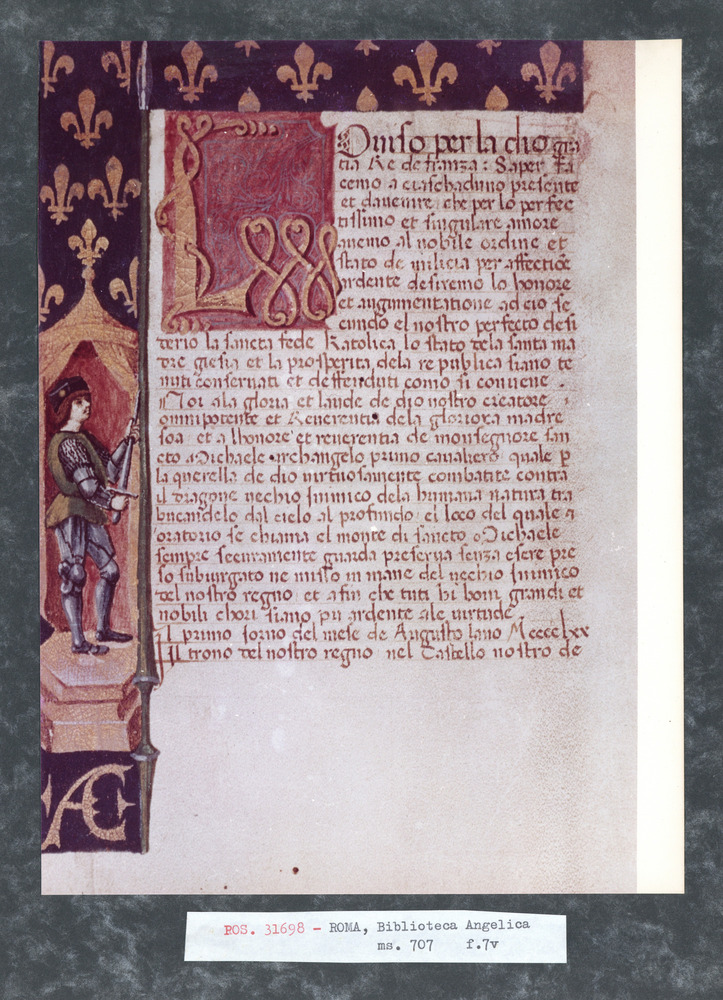 Louiso per la dio gra
tia Re de franza : Saper fa
cemo a ciaschaduno presente
et davenire che per lo perfec
tissimo et singulare amore
avemo al nobile ordine et
stato de milicia per affectiõe
ardente desiremo lo honore
et augumentatione ad cio se
cundo el nostro perfecto desi
derio la sancta fede Katolica lo stato dela santa ma
dre giesia et la prosperita dela re publica siano te
nuti conservati et deffenduti como si convene .
Noi ala gloria et laude de dio nostro creatore
omnipotente et Reverentia dela glorioxa madre
soa et a lhonore et reverentia de monsegnore san
cto Michaele archangelo primo cavaliero quale p
la querella de dio virtuosamente combatite contra
il dragone vechio inimico dela humana natura tra
bucandelo dal cielo al profundo el loco del quale
oratorio se chiama el monte di sancto Michaele
sempre securamente guarda preserva senza esere pre
so subiurgato ne misso in mane del vechio inimico
del nostro regno et afin che tuti li boni grandi et
nobili chori siano piu ardente ale virtude
Il primo iorno del mese de Augusto lano Mcccclxx
Il trono del nostro regno nel Castello nostro de
Æ
POS. 31698 - ROMA, Biblioteca Angelica
ms. 707 f.7v